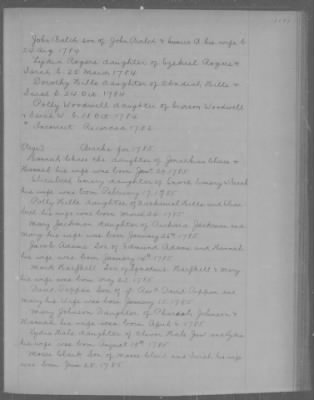 John Balch son of John Balch & his wife b.
24 Aug. 1784
Lydia Rogers daughter of Ezekiel Rogers &
Sarah b. 25 March 1784.
Dorothy Hills daughter of Obadiah Hills &
Sarah b. 24 Oct. 1784
Polly Woodwell daughter of Gideon Woodwell
& Sarah W. b. 18 Oct. 1784
* Incorrect Recorded 1782
Births for 1785.
Hannah Chase the daughter of Jonathan Chase &
Hannah his wife was born Jany 29 1785
Elizabeth Emery daughter of Enoch Emery & Sarah
his wife was born February 17. 1785
Polly Hills daughter of Nathaniel Hills and
his wife was born March 20. 1785
Mary Jackman daughter of Richard Jackman and
Mary his wife was born January 26th 1785.
Jacob Adams Son of Edmund Adams and Hannah
his wife was born January 14th 1785
Mark Haskell Son of Ignatius Haskell & Mary
his wife was born May 22. 1785.
David Coffin Son of David Coffin and
Mary his Wife was born January 15. 1785
Mary Johnson Daughter of Pharaoh Johnson &
Hannah his wife was born April 6. 1785
Lydia Hale daughter of Hale
his wife was born August 19th 1785
Moses Clark Son of Moses Clark and Sarah his wife
was born June 25. 1785